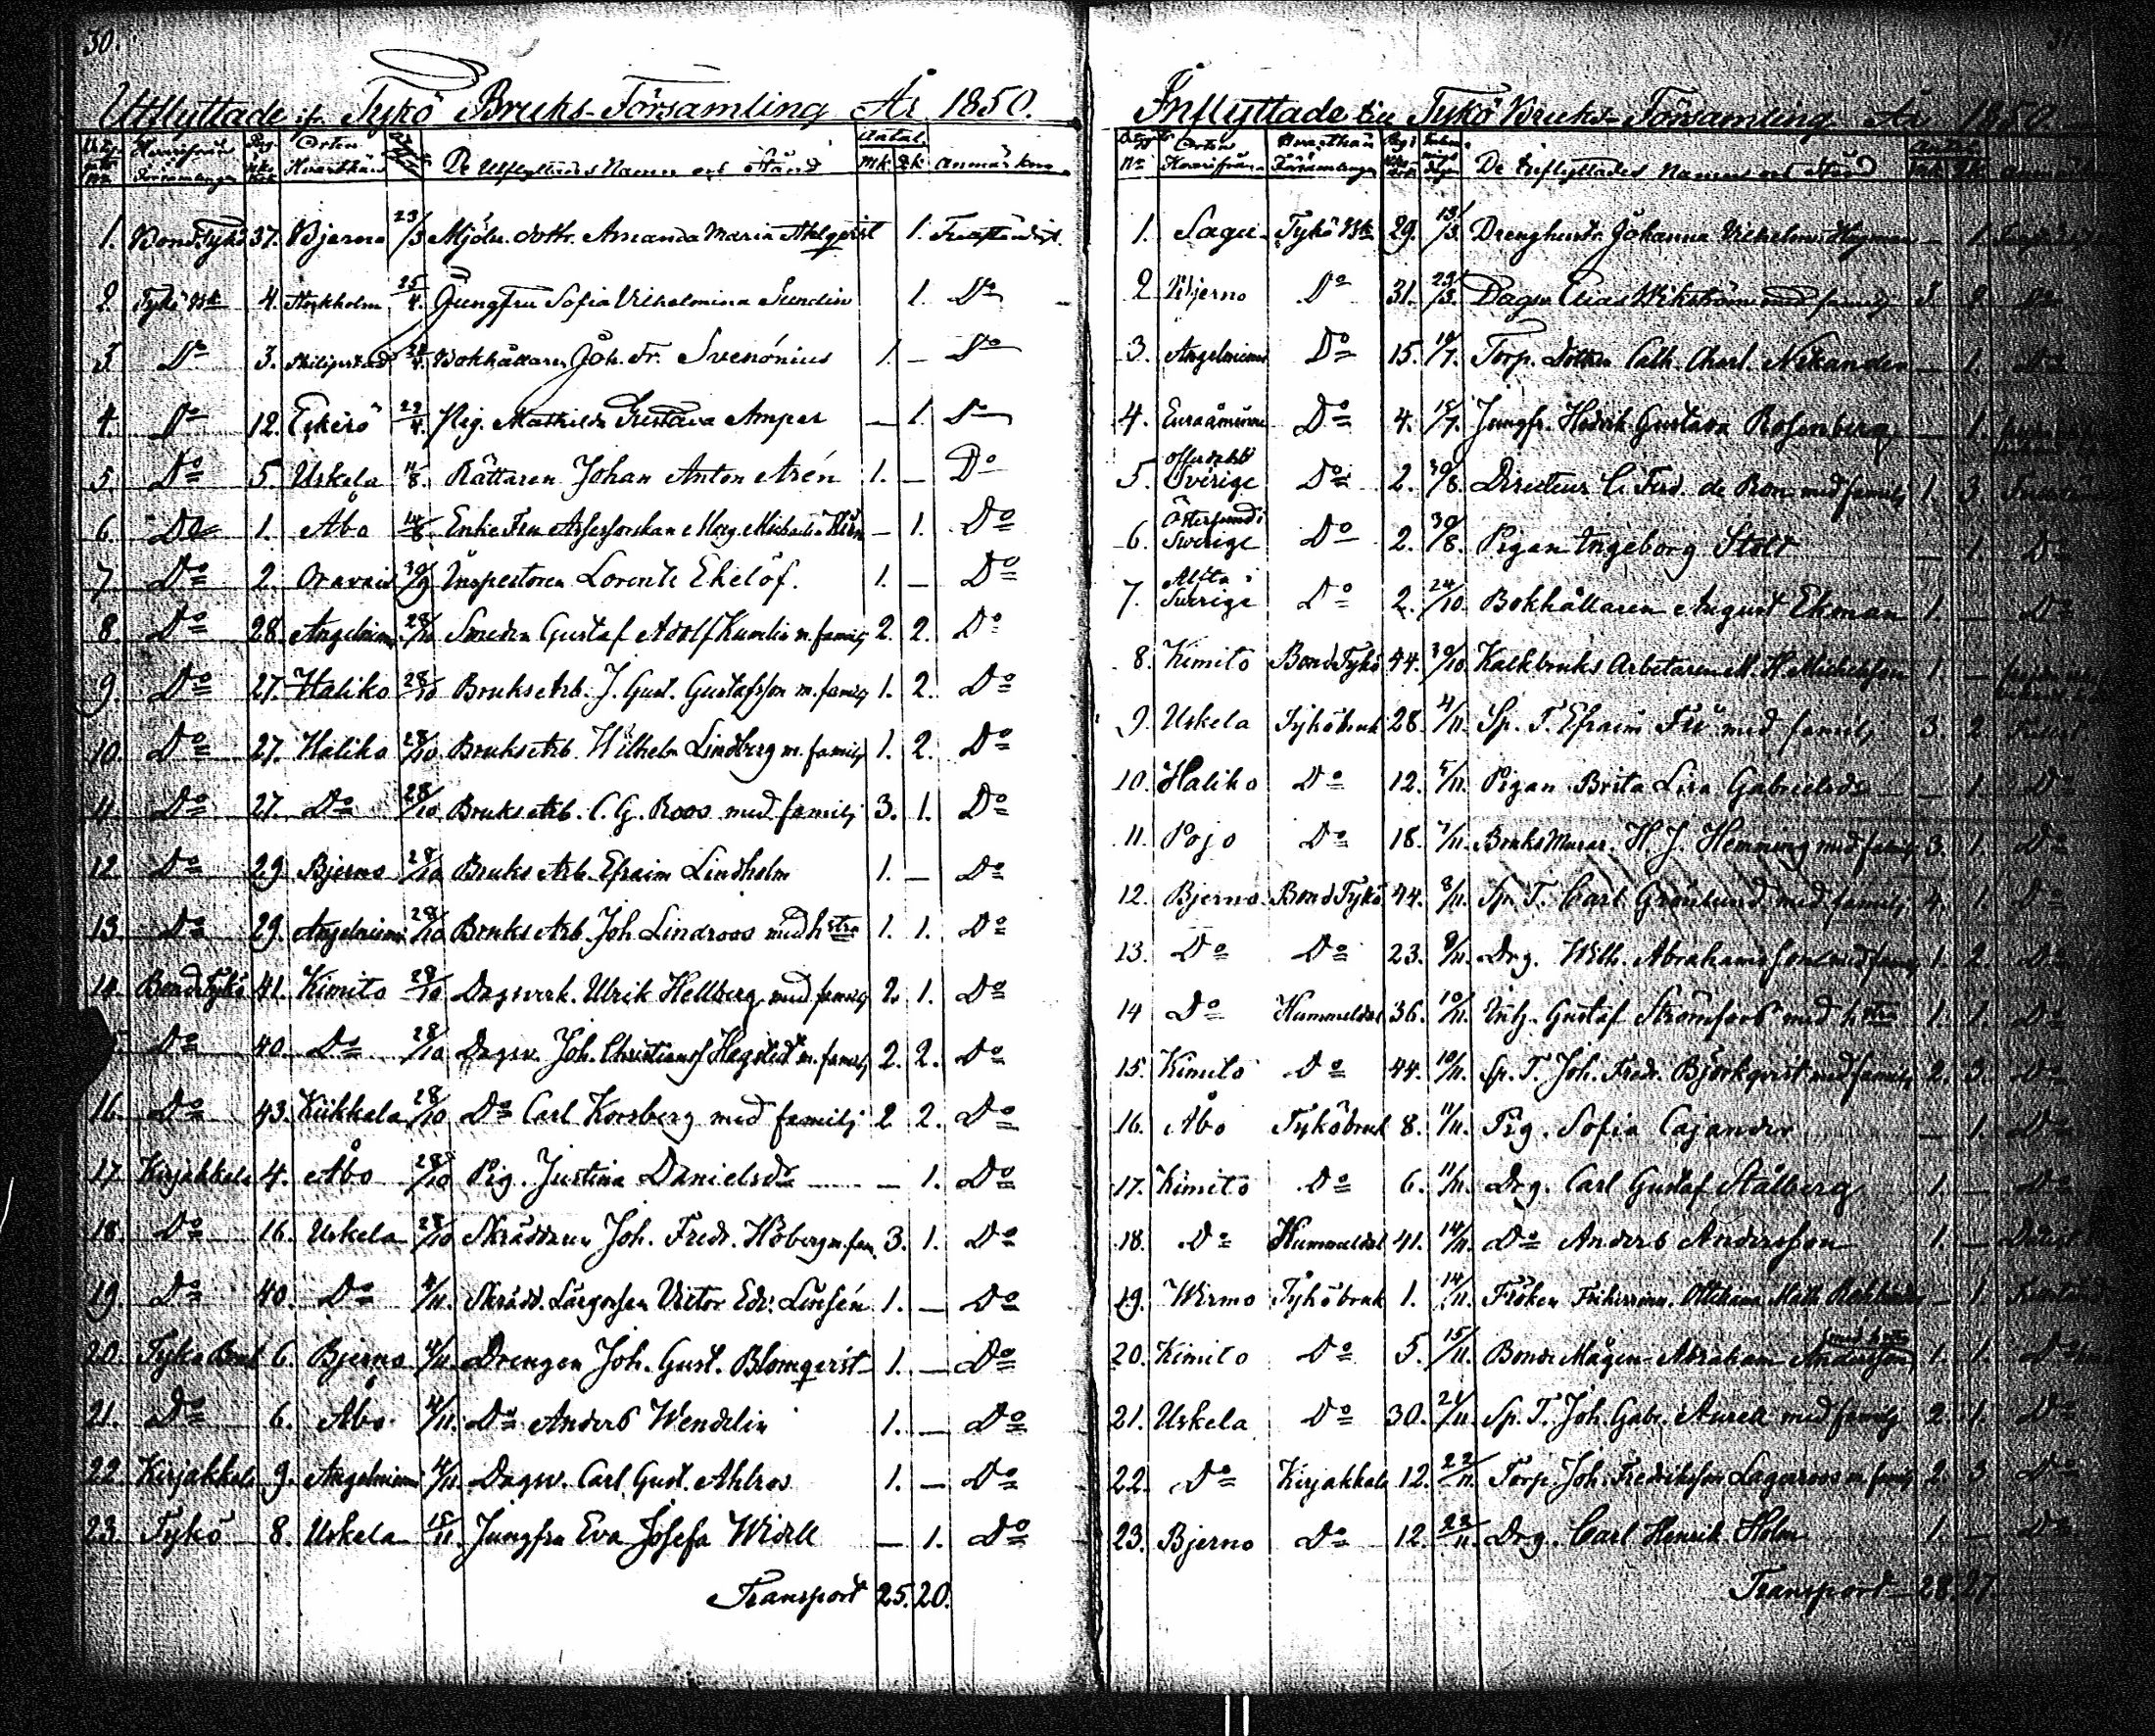 30.
Utflyttade if. Tykö Bruks-Församling År 1850.
De Utflyttades Namn och Stånd
Antal
Mk. Qk. Anmärkn.
1. Bond.Tykö 37. Bjerno 23/3 Mjöln. dottr. Amanda Maria Ahlqvist 1.
2. Tykö Bk 4. Stockholm 25/4. Jungfru Sofia Vilhelmina Sundin 1. Do
3. Do 3. Philipstad Bokhållaren Joh. Fr. Svenónius 1. – Do
4. Do 12. Ekerö 29/4. Pig. Mathilda Gustava Amper – 1. Do
5. Do 5. Uskela Rättaren Johan Anton Arén 1. – Do
6. Do 1. Åbo Enke Fru – 1. Do
7. Do 2. Oravais 30/9 Inspectoren Lorentz Ekelöf. 1. – Do
8. Do 28. Angelniemi 28/10 Smeden Gustaf Adolf Kumlin m. familj 2. 2. Do
9. Do 27. Haliko 28/10 Bruks Arb. J. Gust. Gustafsson m. familj 1. 2. Do
10. Do 27. Haliko 28/10 Bruks Arb. Wilhelm Lindberg m. familj 1. 2. Do
11. Do 27. Do 28/10 Bruks Arb. C. G. Roos med familj 3. 1. Do
12. Do 29 Bjerno 28/10 Bruks Arb. Efraim Lindholm 1. – Do
13. Do 29. Angelniemi 28/10 Bruks Arb. Joh. Lindroos med hstru 1. 1. Do
14. Bond.Tykö 41. Kimito 28/10 Dagsverk. Ulrik Hellberg med familj 2. 1. Do
Do 40. Do 28/10 Dagsv. Joh. m. familj 2. 2. Do
16. Do 43. Kiikkala 28/10 Do Carl Korsberg med familj 2 2. Do
17. Kirjakkala 4. Åbo 28/10 Pig. Justina Danielsdr – 1. Do
18. Do 16. Uskela 28/10 Skräddaren Joh. Fredr. Höberg m. fam. 3. 1. Do
19. Do 40. Do 4/11. Skrädd. Victor Edv. 1. – Do
20. Tykö Bruk 6. Bjerno 4/11. Drengen Joh. Gust. Blomqvist 1. – Do
21. Do 6. Åbo 4/11. Do Anders Wendelin 1. – Do
22 Kirjakkala 9. Angelniemi 4/11. Dagsv. Carl Gust. Ahlros 1. – Do
23. Tykö 8. Uskela 15/11. Jungfru Eva Josefa Widell – 1. Do
Transport 25. 20.
31.
Inflyttade till Tykö Bruks-Församling År 1850.
De Inflyttades Namn och Stånd
1. Sagu Tykö Bk 29. 13/3. Drenghustr. Johanna Vilhelmi. Hagman – 1.
2 Bjerno Do 31. 23/3. Dagsv. Elias Wikström med familj 2. Do
3. Angelniemi Do 15. 10/7. Torp. dottren Cath. Charl. Nikander – 1. Do
4. Euraåminne Do 4. 15/7. Jungfr. Hedvik Gustava Rosenberg – 1.
5. Sverige Do 2. 30/8. Directeur C. Ferd. de Ron med familj 1. 3
6. Östersund i Sverige Do 2. 30/8. Pigan Ingeborg Stolt – 1. Do
7. Alfta i Sverige Do 2. 24/10. Bokhållaren August Ekman 1. – Do
8. Kimito Bond Tykö 44. 30/10. Kalkbruks Arbetaren M. H. Michelsson 1. –
9. Uskela Tykö bruk 28. 4/11. Sp. T. Efraim med familj 3. 2
10. Haliko Do 12. 5/11. Pigan Brita Lisa Gabrielsdr – 1. Do
11. Pojo Do 18. 7/11. Bruks Murar. H. J. Hemming med familj 3. 1. Do
12. Bjerno Bond Tykö 44. 8/11. Sp. T. Carl Grönlund med familj 4. 1. Do
13. Do Do 23. 9/11. Drg. Wilh. Abrahamsson med familj 1. 2. Do
14 Do Hummeldal 36. 10/11. Inh. Gustaf Strömfors med hstru 1. 1. Do
15. Kimito Do 44. 10/11. Sp. T. Joh. Fredr. Björkqvist med familj 2. 3. Do
16. Åbo Tykö bruk 8. 11/11. Pig. Sofia Cajander – 1. Do
17. Kimito Do 6. 11/11. Drg. Carl Gustaf Stålberg 1. – Do
18. Do Hummeldal 41. 14/11. Do Anders Andersson 1. –
19. Wirmo Tykö bruk 1. 14/11. Fröken Friherrinn. – 1.
20. Kimito Do 5. 15/11. Bonde Mågen Abraham Andersson med hstru 1. 1. Do
21. Uskela Do 30. 21/11. Sp. T. Joh. Gabr. Aurell med familj 2. 1. Do
22. Do Kirjakkala 12. 22/11. Torp. Joh. Fredriksson Lagerroos m. familj 2. 3 Do
23. Bjerno Do 12. 23/11. Drg. Carl Henrik Holm 1. – Do
Transport 28. 27